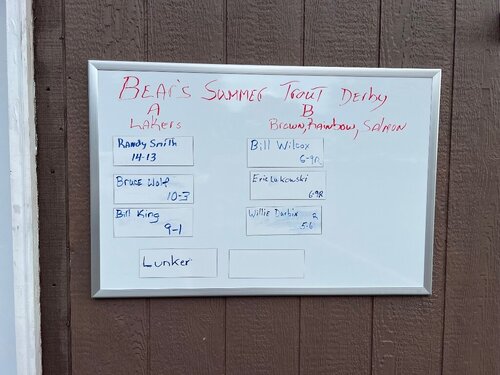 Bear's Summer Trout Derby
A
Lakers
Randy Smith
14-13
Bruce Wolf
10-3
Bill King
9-1
Lunker
B
Brown, Rainbow, Salmon
Bill Wilcox
6-9R
Eric Lukowski
6-9R
Willie
R
5-6